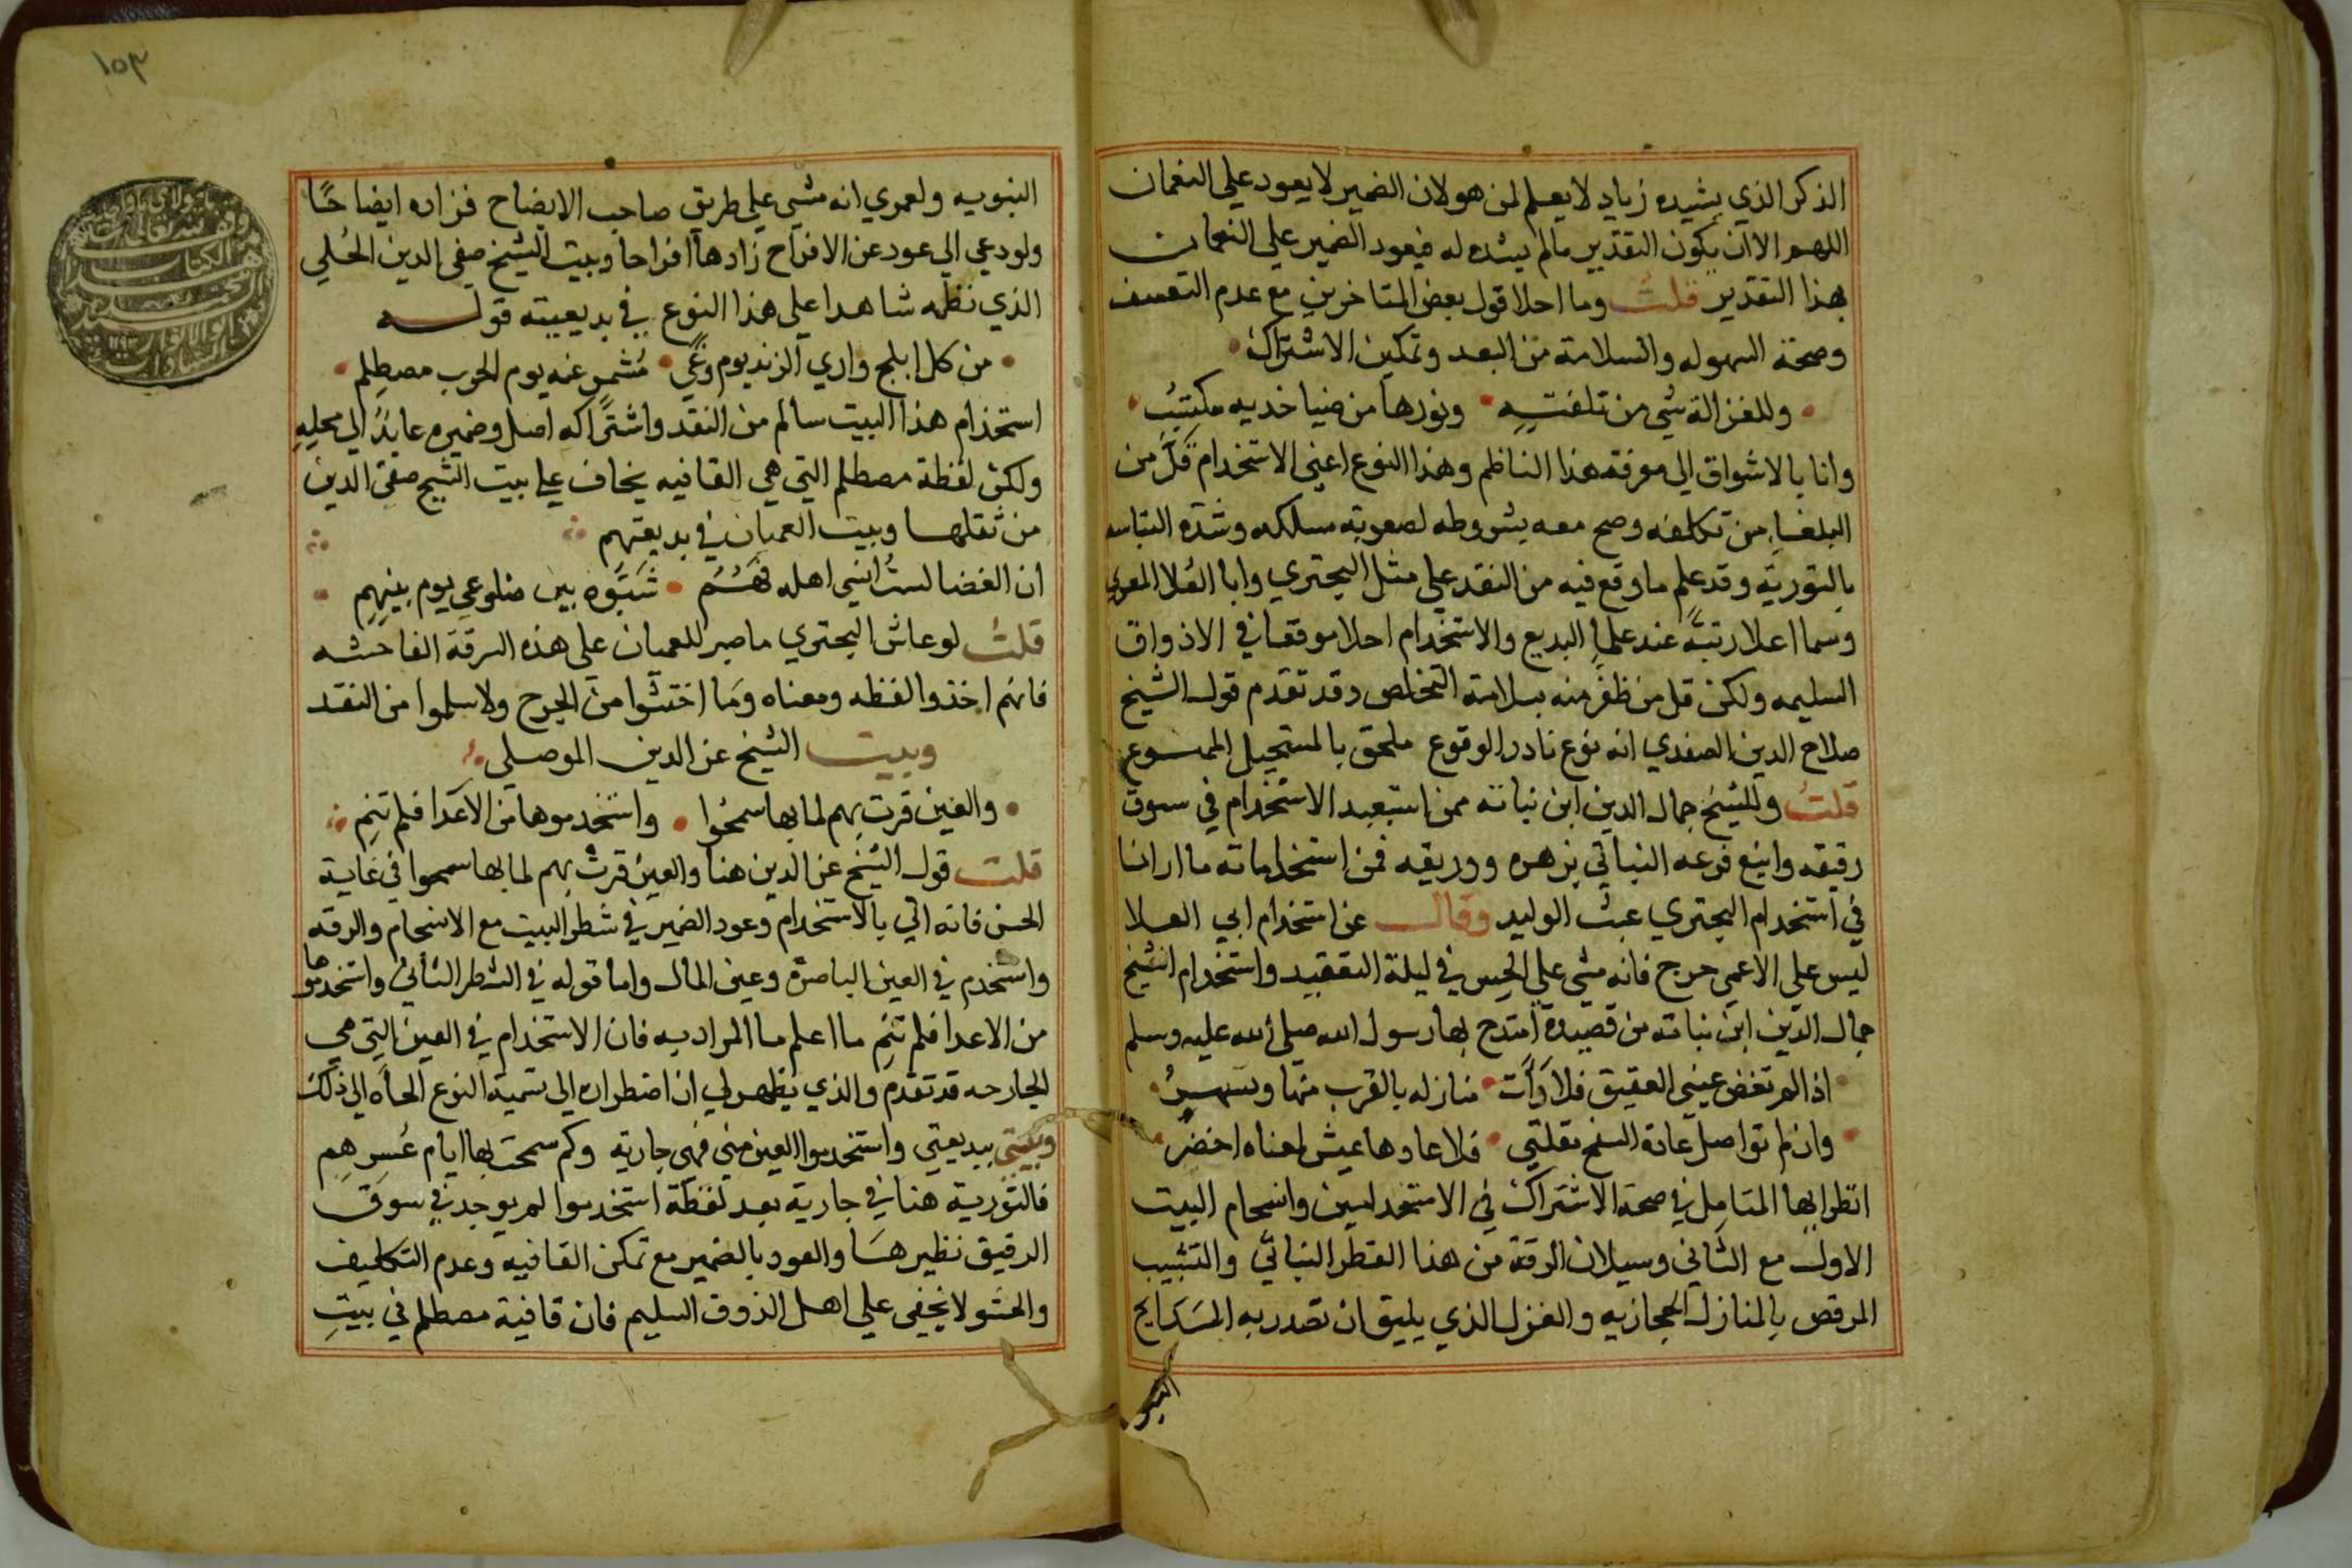 الذكر الذي يشيده زياد لا يعلم لمن هو لان الضمير لا يعود علي النعمان
اللهم الا ان يكون التقدير مالم يشده له فيعود الضمير علي النعمان
بهذا التقدير قلت وما احلا قول بعض المتاخرين مع عدم التعسف
وصحة السهوله والسلامة من البعد وتمكين الاشتراك
وللغزالة شي من تلفته ونورها من ضيا خديه مكتسب
وانا بالاشواق الي معرفة هذا الناظم وهذا النوع اعني الاستخدام قل من
البلغا من تكلفه وصح معه بشروطه لصعوبة مسلكه وشدة التباسه
بالتورية وقد علم ما وقع فيه من النقد علي مثل البحتري وابا العلا المعري
وسما اعلا رتبة عند علما البديع والاستخدام احلا موقعا في الاذواق
السليمه ولكن قل من ظفر منه بسلامة التخلص وقد تقدم قول الشيخ
صلاح الدين الصفدي انه نوع نادر الوقوع ملحق بالمستحيل الممنوع
قلت وللشيخ جمال الدين ابن نباته ممن استعبد الاستخدام في سوق
رقيقه واينع فرعه النباتي بزهره ووريقه فمن استخداماته ما ارانا
في استخدام البحتري عبث الوليد وقال عن استخدام ابي العلا
ليس علي الاعمي حرج فانه مشي علي الحس في ليلة التعقيد واستخدام الشيخ
جمال الدين ابن نباته من قصيدة امتدح بها رسول الله صلي الله عليه وسلم
اذا لم تفض عيني العقيق فلا رات منازله بالقرب منها وتبهر
وان لم تواصل عادة السفح مقلتي فلا عادها عيش لمغناه اخضر
انظر ايها المتامل في صحة الاشتراك في الاستخدامين وانسجام البيت
الاول مع الثاني وسيلان الرقة من هذا القطر النباتي والتشبيب
المرقص بالمنازل الحجازيه والغزل الذي يليق ان تصدر به المدايح
النبو
١٥٣
النبويه ولعمري انه مشي علي طريق صاحب الايضاح فزاده ايضاحا
ولو دعي الي عود عن الافراح زادها افراحا وبيت الشيخ صفي الدين الحلي
الذي نظمه شاهدا علي هذا النوع في بديعيته قوله
من كل ابلج واري الزند يوم وغي مشمر عنه يوم الحرب مصطلم
استخدام هذا البيت سالم من النقد واشتراكه اصل وضميره عايد الي محليه
ولكن لفظة مصطلم التي هي القافيه يخاف علي بيت الشيخ صفي الدين
من ثقلها وبيت العميان في بديعتهم
ان الغضا لست انسي اهله فهم شبوه بين ضلوعي يوم بينهم
قلت لو عاش البحتري ما صبر للعميان علي هذه السرقة الفاحشه
فانهم اخذوا لفظه ومعناه وما اختشوا من الجرح ولا سلموا من النقد
وبيت الشيخ عز الدين الموصلي
والعين قرت بهم لما بها سمحوا واستخدموها من الاعدا فلم تنم
قلت قول الشيخ عز الدين هنا والعين قرت بهم لما بها سمحوا في غاية
الحسن فانه اتي بالاستخدام وعود الضمير في شطر البيت مع الانسجام والرقه
واستخدم في العين الباصرة وعين المال واما قوله في الشطر الثاني واستخدموها
من الاعدا فلم تنم ما اعلم ما المراد به فان الاستخدام في العين التي هي
الجارحه قد تقدم والذي يظهر لي ان اضطراره الي تسمية النوع الجاه الي ذلك
وبيتي ببديعتي واستخدموا العين مني فهي جارية وكم سمحت بها ايام عسرهم
فالتورية هنا في جارية بعد لفظة استخدموا لم يوجد في سوق
الرقيق نظيرها والعود بالضمير مع تمكن القافيه وعدم التكليف
والحشو لا يخفي علي اهل الذوق السليم فان قافية مصطلم في بيت